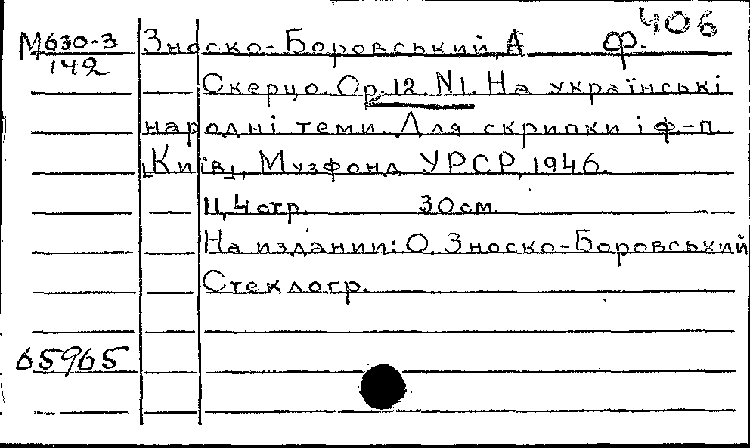 406
М630-3 Зноско-Боровський, А. Ф.
142
Скерцо. Ор. 12. N1. На українські
народні теми. Для скрипки і ф.-п.
[Київ], Музфонд УРСР, 1946.
11, 4 стр. 30 см.
На издании: О. Зноско-Боровський
Стеклогр.
65965